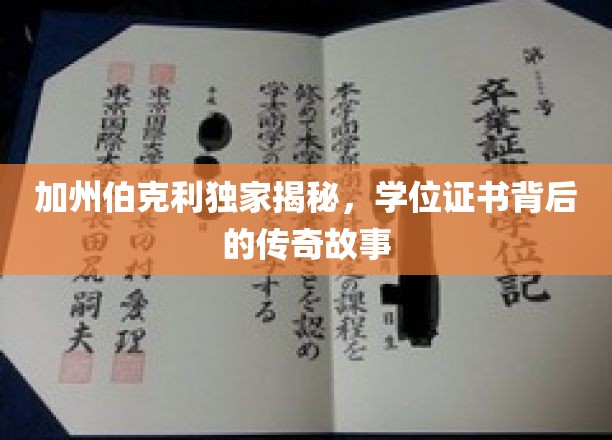 加州伯克利独家揭秘，学位证书背后
的传奇故事
第 号
卒業証 学位記
本学商学部 の課程を
修めて本学 ことを認め
学士(商学)の する
東京国際大学 村愛理
東京国際大 長田尻嗣夫